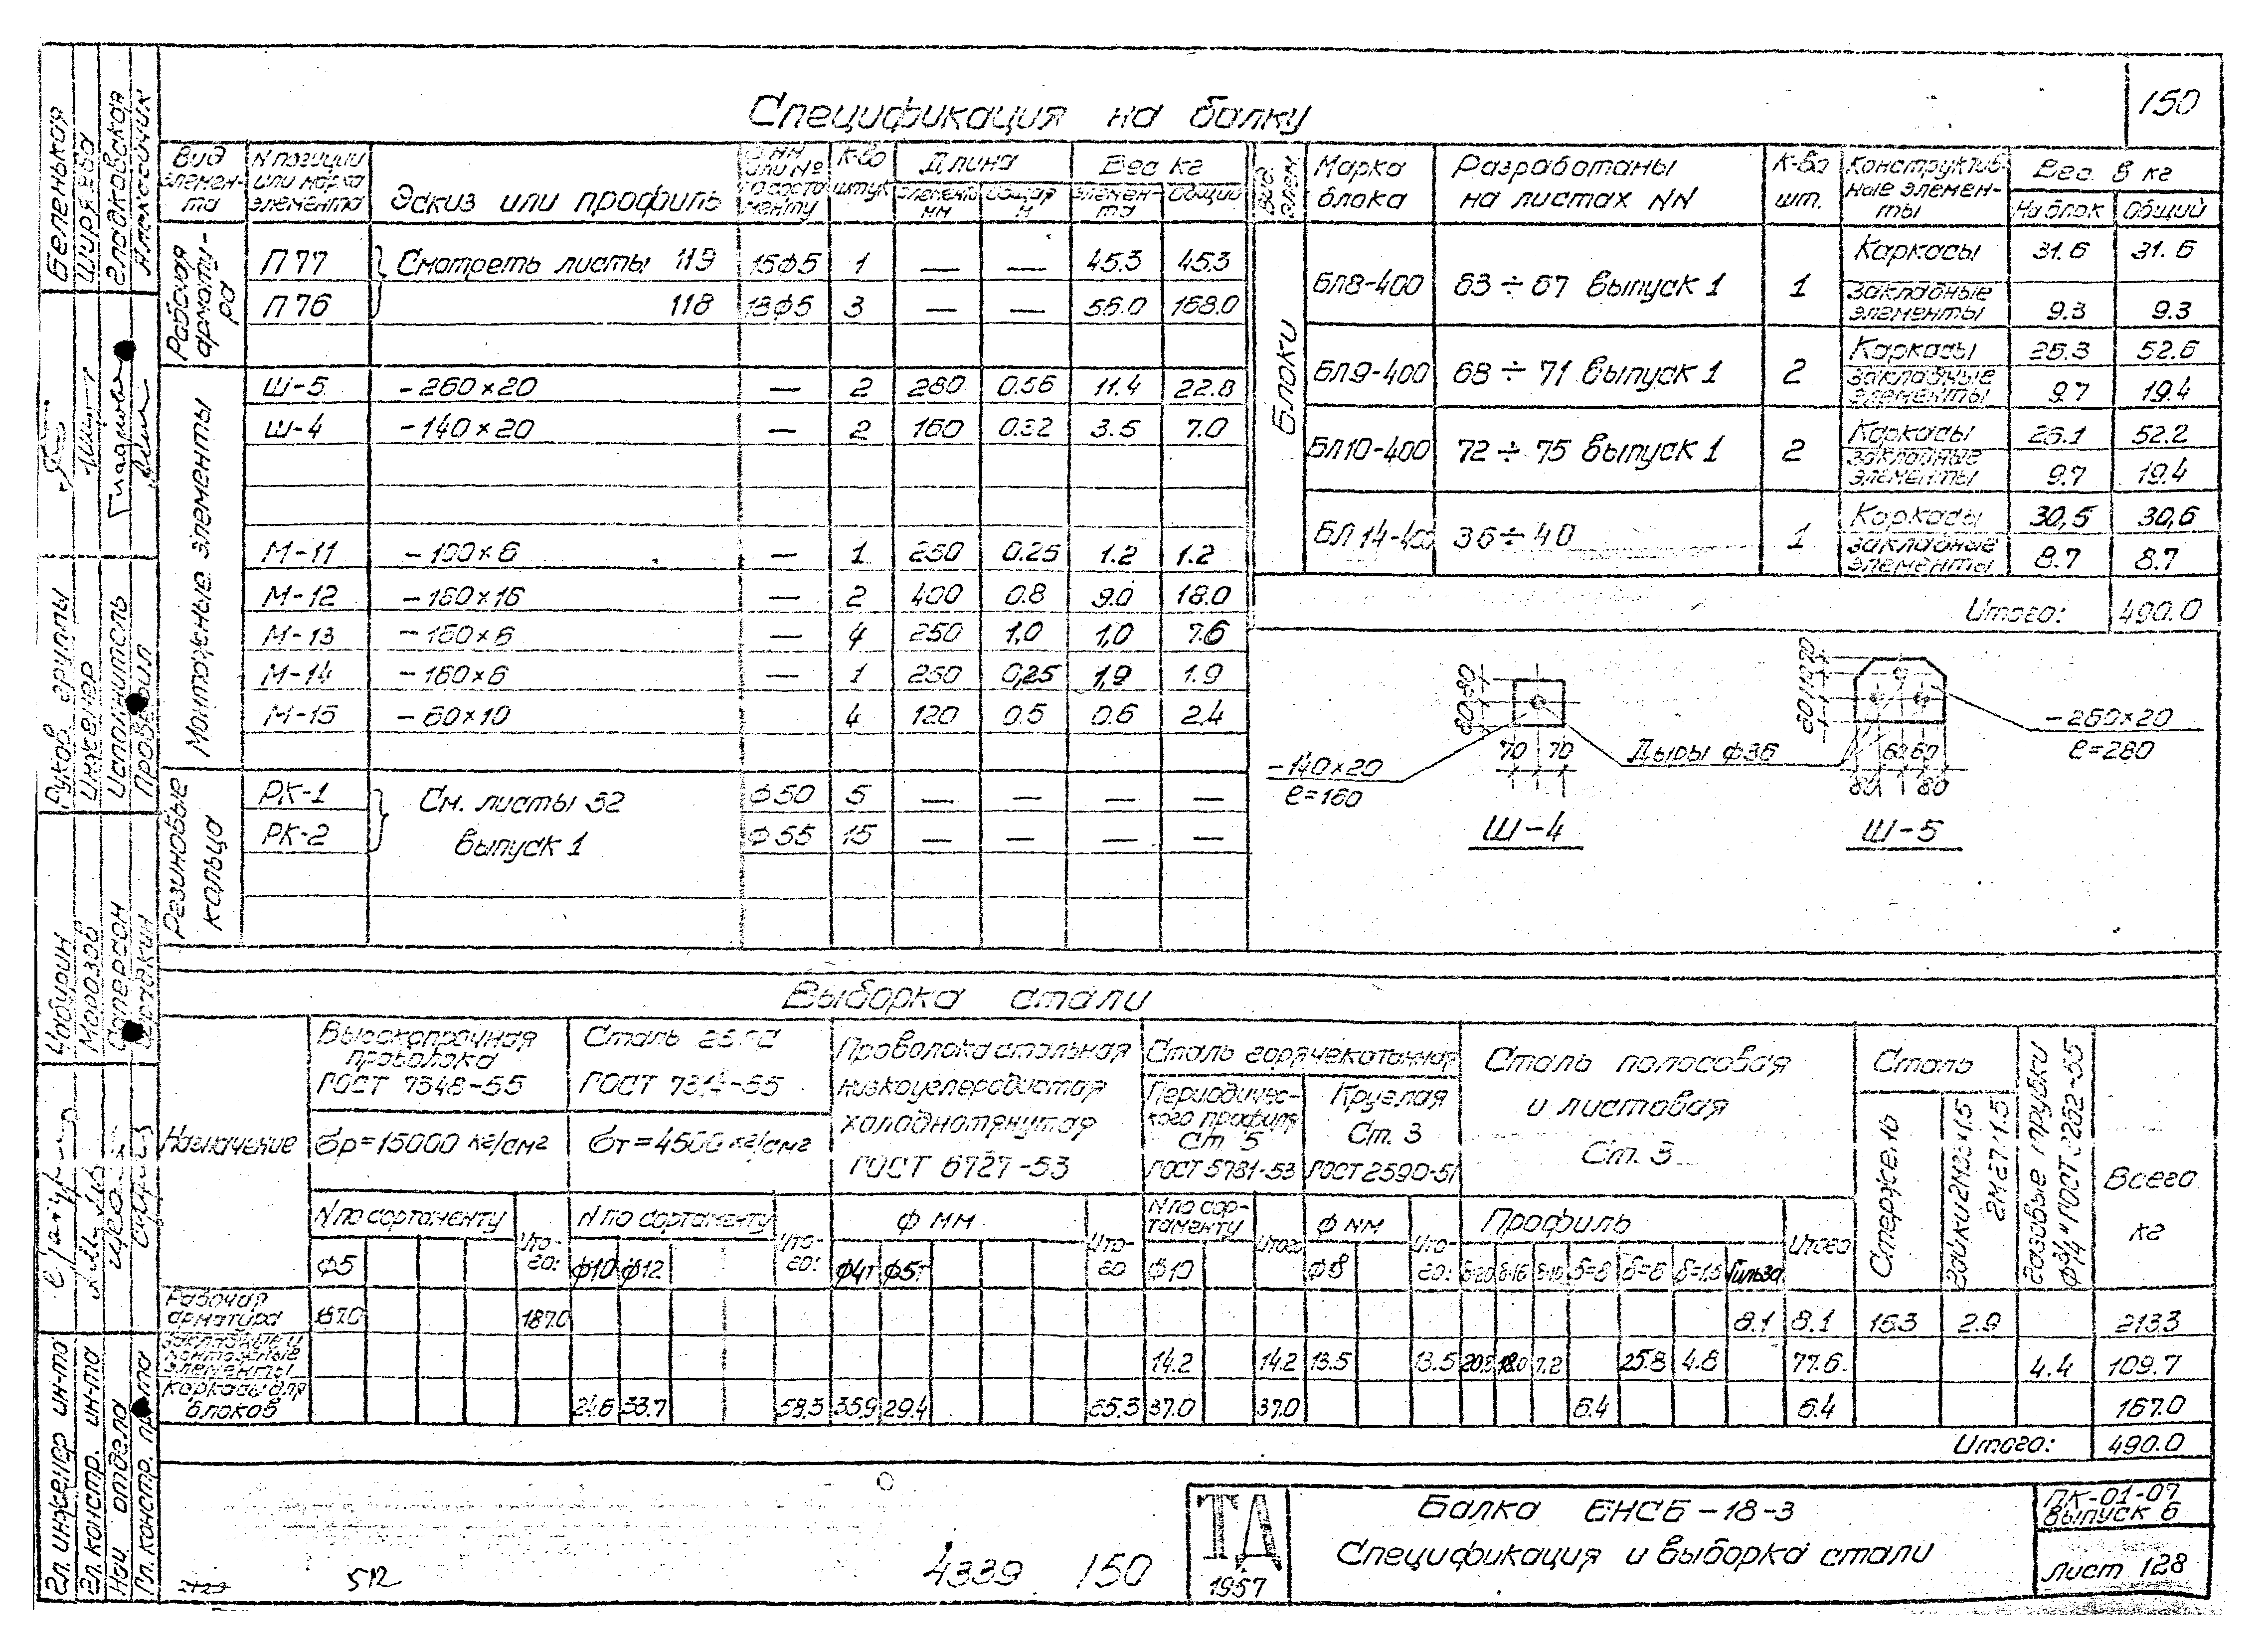 150
Спецификация на балку
Вид элемен-та | N позиции или марка элемента | Эскиз или профиль | Ф мм или № по сортаменту | К-во штук | Длина | Вес кг
элемента мм | общая м | элемен-та | Общий
Рабочая армату-ра
П 77 | Смотреть листы 119 | 15ф5 | 1 | — | — | 45.3 | 45.3
П 76 | 118 | 18ф5 | 3 | — | — | 56.0 | 168.0
Монтажные элементы
Ш-5 | -260×20 | — | 2 | 280 | 0.56 | 11.4 | 22.8
Ш-4 | -140×20 | — | 2 | 160 | 0.32 | 3.5 | 7.0
М-11 | -100×6 | — | 1 | 250 | 0.25 | 1.2 | 1.2
М-12 | -160×16 | — | 2 | 400 | 0.8 | 9.0 | 18.0
М-13 | -160×6 | — | 4 | 250 | 1,0 | 1,0 | 7.6
М-14 | -160×6 | — | 1 | 250 | 0,25 | 1,9 | 1.9
М-15 | -60×10 | 4 | 120 | 0.5 | 0.6 | 2.4
Резиновые кольца
РК-1 | См. листы 32 | ф50 | 5 | — | — | — | —
РК-2 | выпуск 1 | ф55 | 15 | — | — | — | —
Вид элем. | Марка блока | Разработаны на листах NN | К-во шт. | Конструктив-ные элемен-ты | Вес в кг
На блок | Общий
Блоки
БЛ8-400 | 63÷67 выпуск 1 | 1 | Каркасы | 31.6 | 31.6
закладные элементы | 9.3 | 9.3
БЛ9-400 | 68÷71 выпуск 1 | 2 | Каркасы | 26.3 | 52.6
закладные элементы | 9.7 | 19.4
БЛ10-400 | 72÷75 выпуск 1 | 2 | Каркасы | 26.1 | 52.2
закладные элементы | 9.7 | 19.4
БЛ14-400 | 36÷40 | 1 | Каркасы | 30,5 | 30,6
закладные элементы | 8.7 | 8.7
Итого: 490.0
80 80
70 70
-140×20
ℓ=160
Ш-4
Дыры ф36
60 110 70
60 60
80 80
-260×20
ℓ=280
Ш-5
Выборка стали
Назначение
Высокопрочная проволока
ГОСТ 7348-55
σр=15000 кг/см2
N по сортаменту | Ито-го:
ф5
Сталь
ГОСТ 7314-55
σт=4500 кг/см2
N по сортаменту | Ито-го:
ф10 | ф12
Проволока стальная
низкоуглеродистая
холоднотянутая
ГОСТ 6727-53
ф мм | Ито-го
ф4т | ф5т
Сталь горячекатанная
Периодичес-кого профиля Ст 5
ГОСТ 5781-53
N по сор-таменту | Итого
ф10
Круглая Ст. 3
ГОСТ 2590-51
ф мм | Ито-го:
ф8
Сталь полосовая
и листовая
Ст. 3
Профиль | Итого
δ=20 | δ=16 | δ=10 | δ=8 | δ=6 | δ=1.5 | Гильза
Сталь
Стерж.16
Гайки 2М33×1.5
2М27×1.5
Газовые трубки
ф3/4" ГОСТ 3262-55
Всего кг
Рабочая арматура | 187.0 | 187.0 | 8.1 | 8.1 | 16.3 | 2.9 | 213.3
Закладные и монтажные элементы | 14.2 | 14.2 | 13.5 | 13.5 | 20.5 | 18.0 | 7.2 | 25.8 | 4.8 | 77.6 | 4.4 | 109.7
Каркасы для блоков | 24.6 | 33.7 | 58.3 | 35.9 | 29.4 | 65.3 | 37.0 | 37.0 | 6.4 | 6.4 | 167.0
Итого: 490.0
ТД
1957
Балка БНСБ-18-3
Спецификация и выборка стали
ПК-01-07
Выпуск 6
Лист 128
4339 150
512
Беленькая
Ширяева
Гладковская
Рук. группы
Инженер
Исполнитель
Проверил
Морозов
Гл. инженер ин-та
Гл. констр. ин-та
Нач. отдела
Гл. констр. пр-та